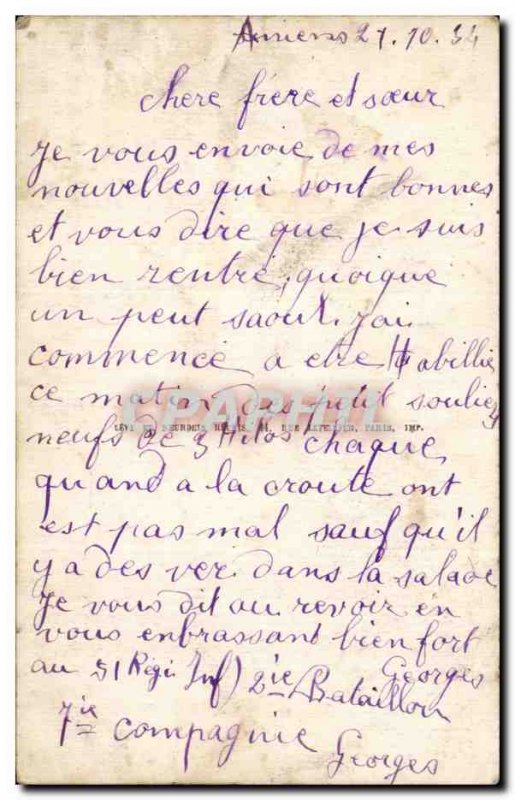 Amiens 27.10.34
chere frere et sœur
Je vous envoie de mes
nouvelles qui sont bonnes
et vous dire que je suis
bien rentré, quoique
un peut saoul. jai
commencé a etre Habillié
ce matin des petit souliez
LÉVY ET NEURDEIN RÉUNIS, 44, RUE LETELLIER, PARIS, IMP.
neufs de 3 Kilos chaque
quand a la croute ont
est pas mal sauf qu'il
y a des ver dans la salade
Je vous dit au revoir en
vous enbrassant bien fort
Georges
au 51 Régi Inf) 2ie Bataillon
7ie compagnie
Georges